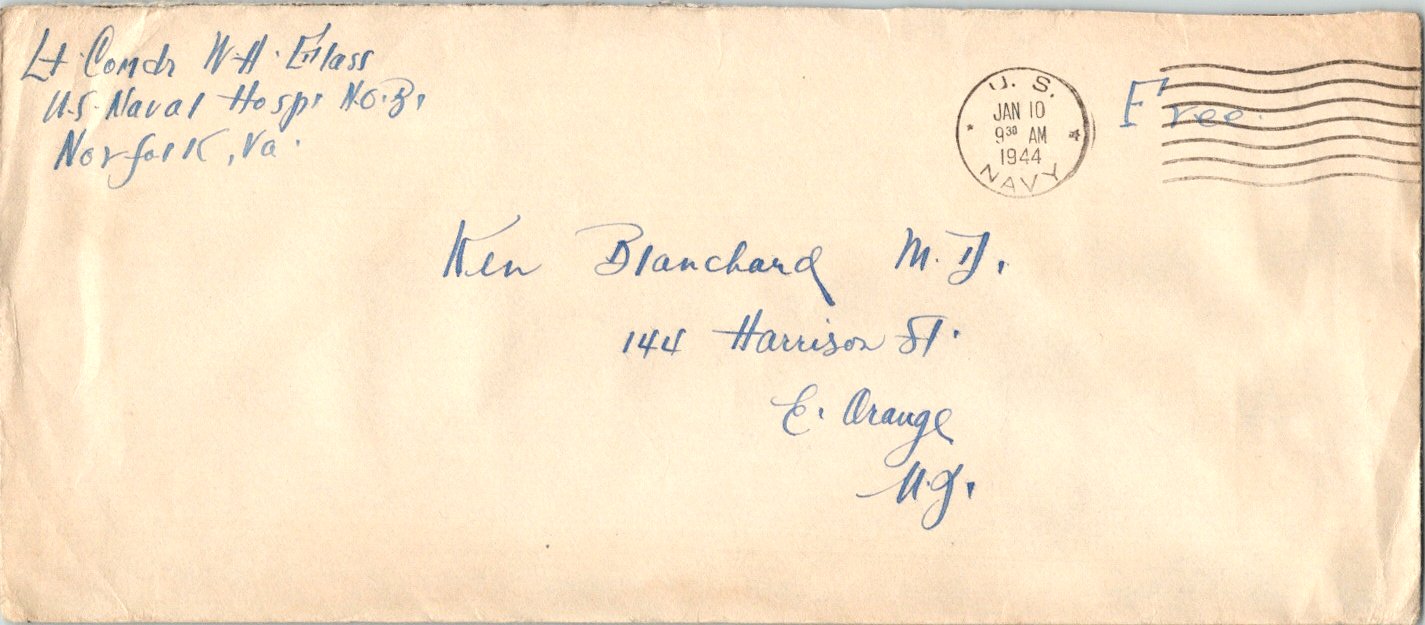 Lt. Comdr W.H. Glass
U.S. Naval Hosp. N.O.B.
Norfolk, Va.
U. S.
JAN 10
9 30 AM
1944
NAVY
Free
Ken Blanchard M.D.
144 Harrison St.
E. Orange
N.J.